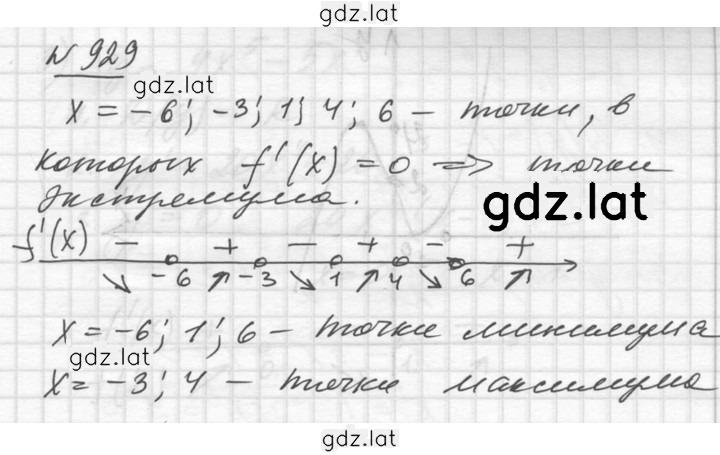 gdz.lat
N 929
gdz.lat
x = -6; -3; 1; 4; 6 - точки, в
которых f'(x) = 0 => точки
экстремума.
gdz.lat
f'(x) - + - + - +
↘ -6 ↗ -3 ↘ 1 ↗ 4 ↘ 6 ↗
x = -6; 1; 6 - точки минимума
gdz.lat
x = -3; 4 - точки максимума
gdz.lat